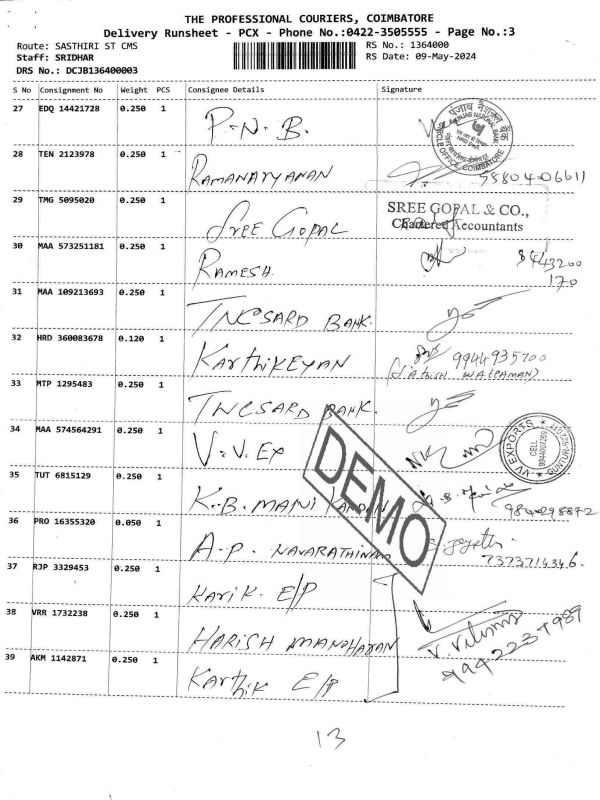 THE PROFESSIONAL COURIERS, COIMBATORE
Delivery Runsheet - PCX - Phone No.:0422-3505555 - Page No.:3
Route: SASTHIRI ST CMS RS No.: 1364000
Staff: SRIDHAR RS Date: 09-May-2024
DRS No.: DCJB136400003
S No Consignment No Weight PCS Consignee Details Signature
27 EDQ 14421728 0.250 1 P.N.B.
पंजाब नैशनल बैंक
PUNJAB NATIONAL BANK
CIRCLE OFFICE, COIMBATORE
28 TEN 2123978 0.250 1 RAMANARYANAN 9880406611
29 TMG 5095020 0.250 1 SREE GOPAL SREE GOPAL & CO.,
Chartered Accountants
30 MAA 573251181 0.250 1 RAMESH. 8443200
170
31 MAA 109213693 0.250 1 TNCSARD BANK.
32 HRD 360083678 0.120 1 KARTHIKEYAN 9944935700
33 MTP 1295483 0.250 1 TNCSARD BANK.
34 MAA 574564291 0.250 1 V.V.EX
VV EXPORTS
CELL
35 TUT 6815129 0.250 1 K.B. MANI KANDAN
36 PRO 16355320 0.050 1 A.P. NAVARATHINAM 7373714346.
37 RJP 3329453 0.250 1 KARIK. E/P
38 VRR 1732238 0.250 1 HARISH MANOHARAN
39 AKM 1142871 0.250 1 Karthik E/P
DEMO
13